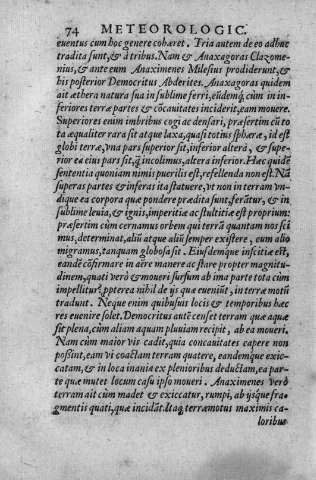 74 METEOROLOGIC.
euentus cum hoc genere cohæret. Tria autem de eo adhuc
tradita sunt, & à tribus. Nam & Anaxagoras Clazome-
nius, & ante eum Anaximenes Milesius prodiderunt, &
his posterior Democritus Abderites. Anaxagoras quidem
ait æthera natura sua in sublime ferri, eūdemq́; cùm in in-
feriores terræ partes & cōcauitates inciderit, eam mouere.
Superiores enim imbribus cogi ac densari, præsertim cū to
ta æqualiter rara sit atque laxa, quasi totius sphæræ, id est
globi terræ, vna pars superior sit, inferior altera, & supe-
rior ea eius pars sit, q̄ incolimus, altera inferior. Hæc quidē
sententia quoniam nimis puerilis est, refellenda non est. Nā
superas partes & inferas ita statuere, vt non in terram vn-
dique ea corpora quæ pondere prædita sunt, ferātur, & in
sublime leuia, & ignis, imperitiæ ac stultitiæ est proprium:
præsertim cùm cernamus orbem qui terrā quantam nos sci
mus, determinat, aliū atque aliū semper existere, eum alio
migramus, tanquam globosa sit. Eiusdemque inscitiæ est,
eandē cōfirmare in aëre manere ac stare propter magnitu-
dinem, quati verò & moueri sursum ab ima parte tota cùm
impellitur: ꝓpterea nihil de ijs quæ eueniūt, in terræ motū
tradunt. Neque enim quibusuis locis & temporibus hæc
res euenire solet. Democritus autē censet terram quæ aquæ
sit plena, cùm aliam aquam pluuiam recipit, ab ea moueri.
Nam cùm maior vis cadit, quia concauitates capere non
possint, eam vi coactam terram quatere, eandemque exic-
catam, & in loca inania ex plenioribus deductam, ea par-
te quæ mutet locum casu ipso moueri. Anaximenes verò
terram ait cùm madet & exiccatur, rumpi, ab ijsque fra-
gmentis quati, quæ incidāt. Itaq; terræmotus maximis ca-
loribus